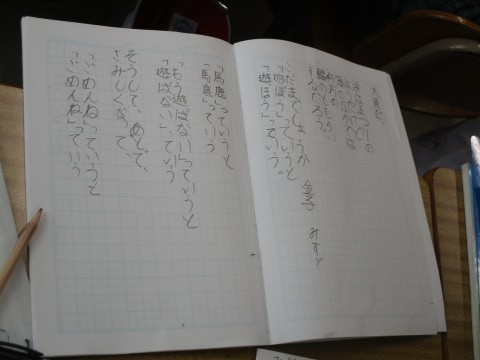 大漁だ
浜はまつりの
するだろう。
こだまでしょうか 金子 みすゞ
「遊ぼう」っていうと
「遊ぼう」っていう。
「馬鹿」っていうと
「馬鹿」っていう
「もう遊ばない」っていうと
「遊ばない」っていう
そうして、あとで、
さみしくなって、
「ごめんね」っていうと
「ごめんね」っていう